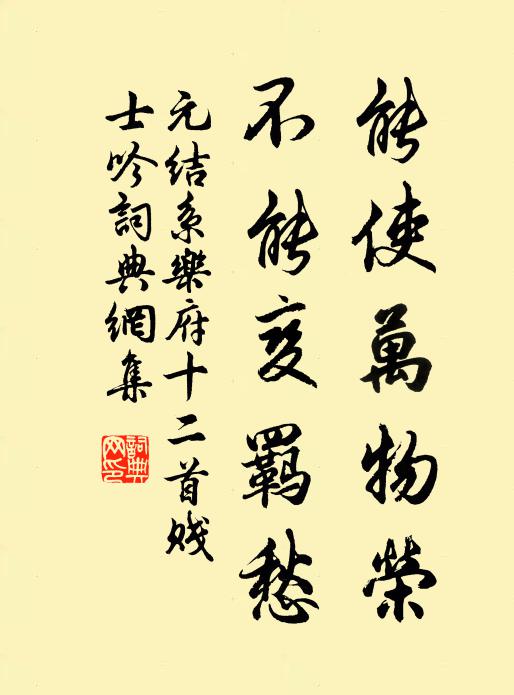 能使萬物榮
不能變羈愁
元結系樂府十二首賤
士吟詞典網集
詞典
网印